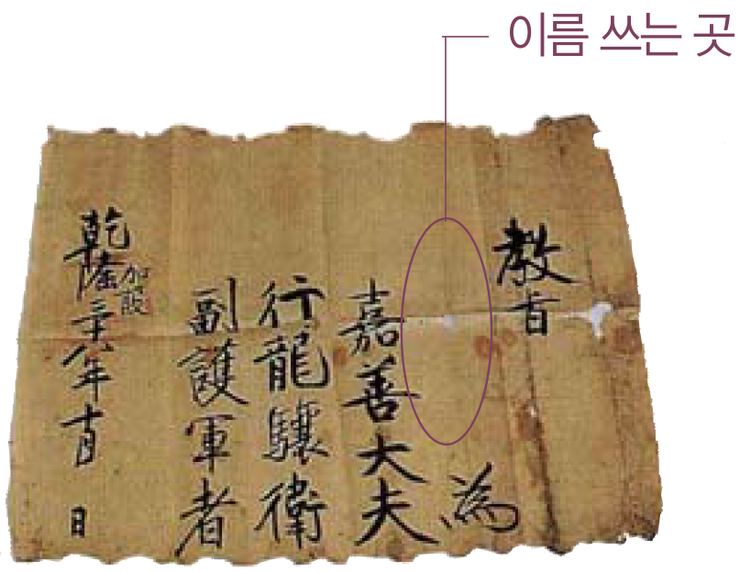 이름 쓰는 곳
教旨
為
嘉善大夫
行龍驤衛
副護軍者
乾隆二十八年十月 日
加設